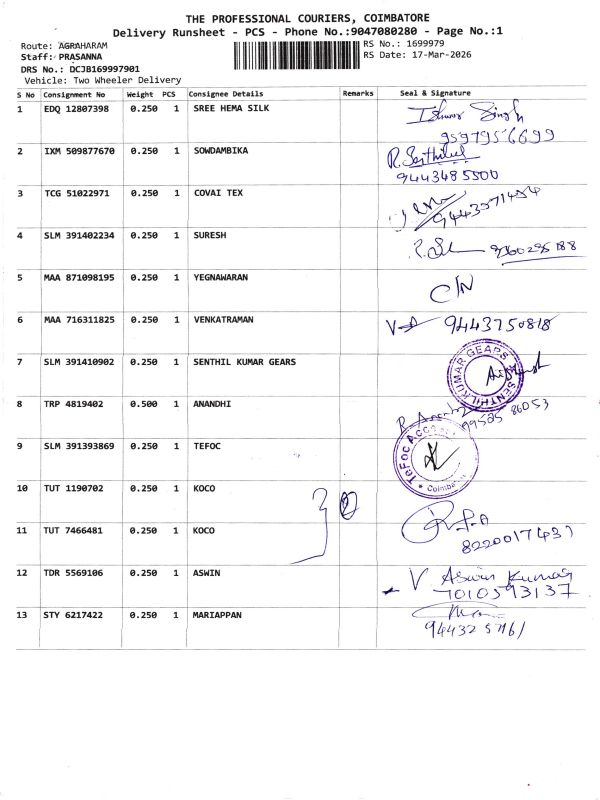 THE PROFESSIONAL COURIERS, COIMBATORE
Delivery Runsheet - PCS - Phone No.:9047080280 - Page No.:1
Route: AGRAHARAM
Staff: PRASANNA
DRS No.: DCJB169997901
Vehicle: Two Wheeler Delivery
RS No.: 1699979
RS Date: 17-Mar-2026
S No Consignment No Weight PCS Consignee Details Remarks Seal & Signature
1 EDQ 12807398 0.250 1 SREE HEMA SILK Ishwar Singh
9597956699
2 IXM 509877670 0.250 1 SOWDAMBIKA R. Senthil
9443485500
3 TCG 51022971 0.250 1 COVAI TEX
4 SLM 391402234 0.250 1 SURESH
5 MAA 871098195 0.250 1 YEGNAWARAN C/N
6 MAA 716311825 0.250 1 VENKATRAMAN 9443750818
7 SLM 391410902 0.250 1 SENTHIL KUMAR GEARS SENTHILKUMAR GEARS
8 TRP 4819402 0.500 1 ANANDHI
99585 86053
9 SLM 391393869 0.250 1 TEFOC TEFOC
Coimbatore
10 TUT 1190702 0.250 1 KOCO
11 TUT 7466481 0.250 1 KOCO 2
8220017431
12 TDR 5569106 0.250 1 ASWIN V Aswin Kumar
7010593137
13 STY 6217422 0.250 1 MARIAPPAN